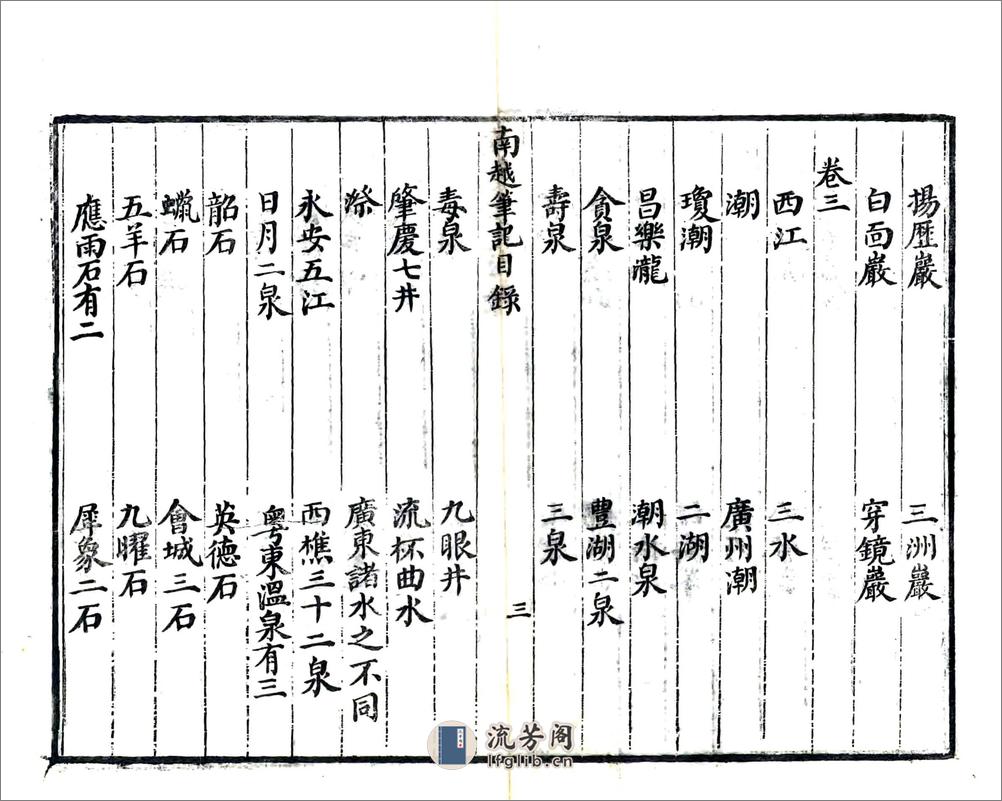 揚歷巖　三洲巖
白面巖　穿鏡巖
卷三
西江　三水
潮　廣州潮
瓊潮　二湖
昌樂瀧　潮水泉
貪泉　豐湖二泉
壽泉　三泉
南越筆記目錄　三
毒泉　九眼井
肇慶七井　流杯曲水
漈　廣東諸水之不同
永安五江　西樵三十二泉
日月二泉　粵東溫泉有三
韶石　英德石
蠟石　會城三石
五羊石　九曜石
應雨石有二　犀象二石
流芳阁
lfglib.cn